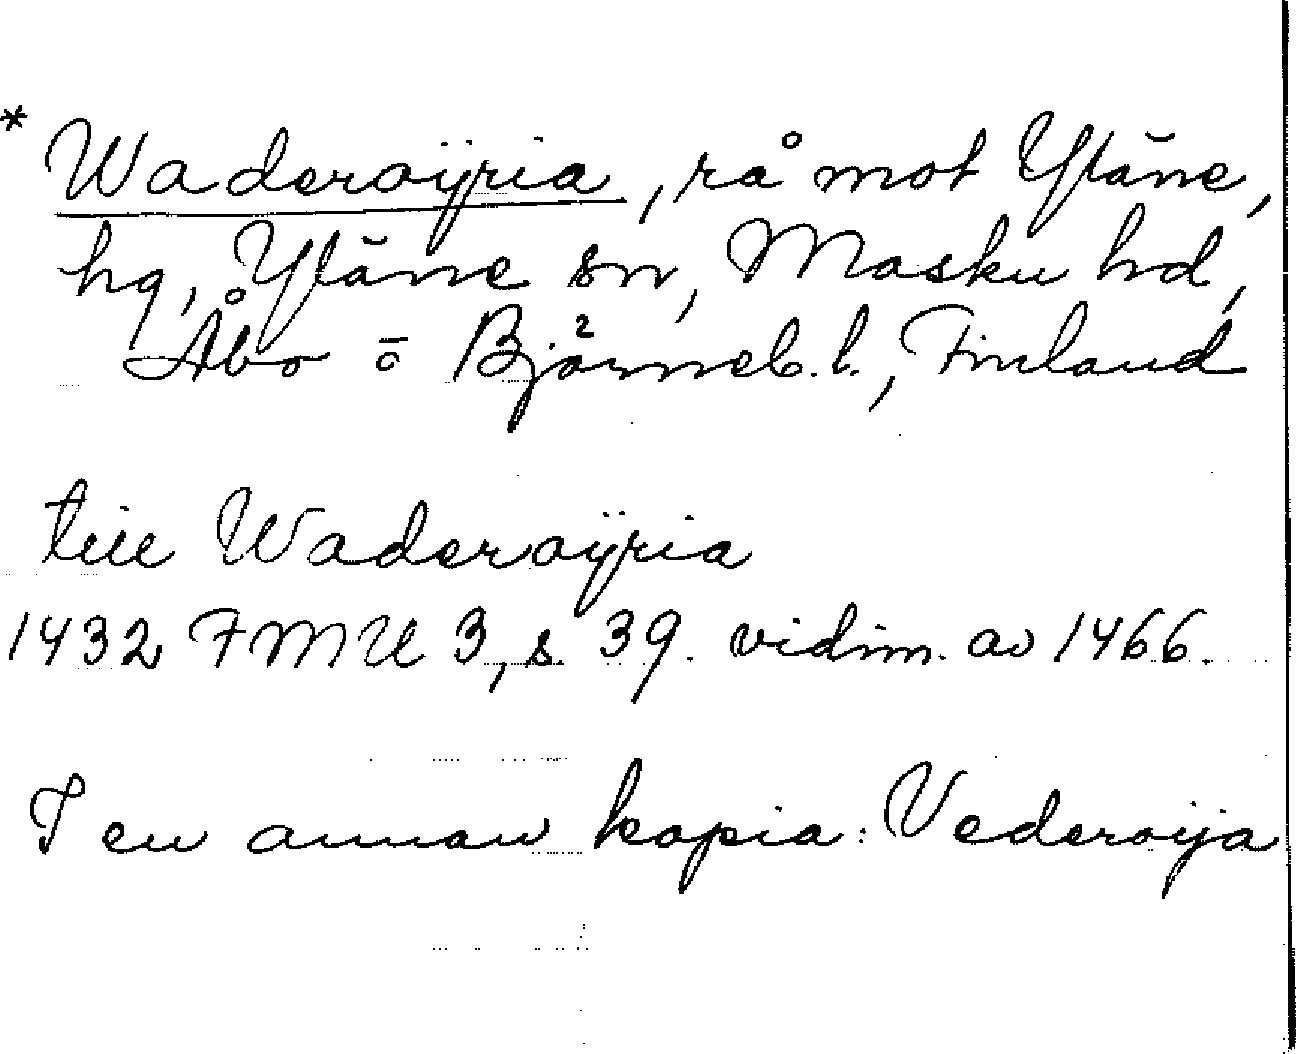 * Waderoÿria, rå mot Yläne,
hg, Yläne sn, Masku hd,
Åbo o Björneb. l., Finland
till Waderoÿria
1432 FMU 3, s. 39. vidim. av 1466.
I en annan kopia: Vederoija